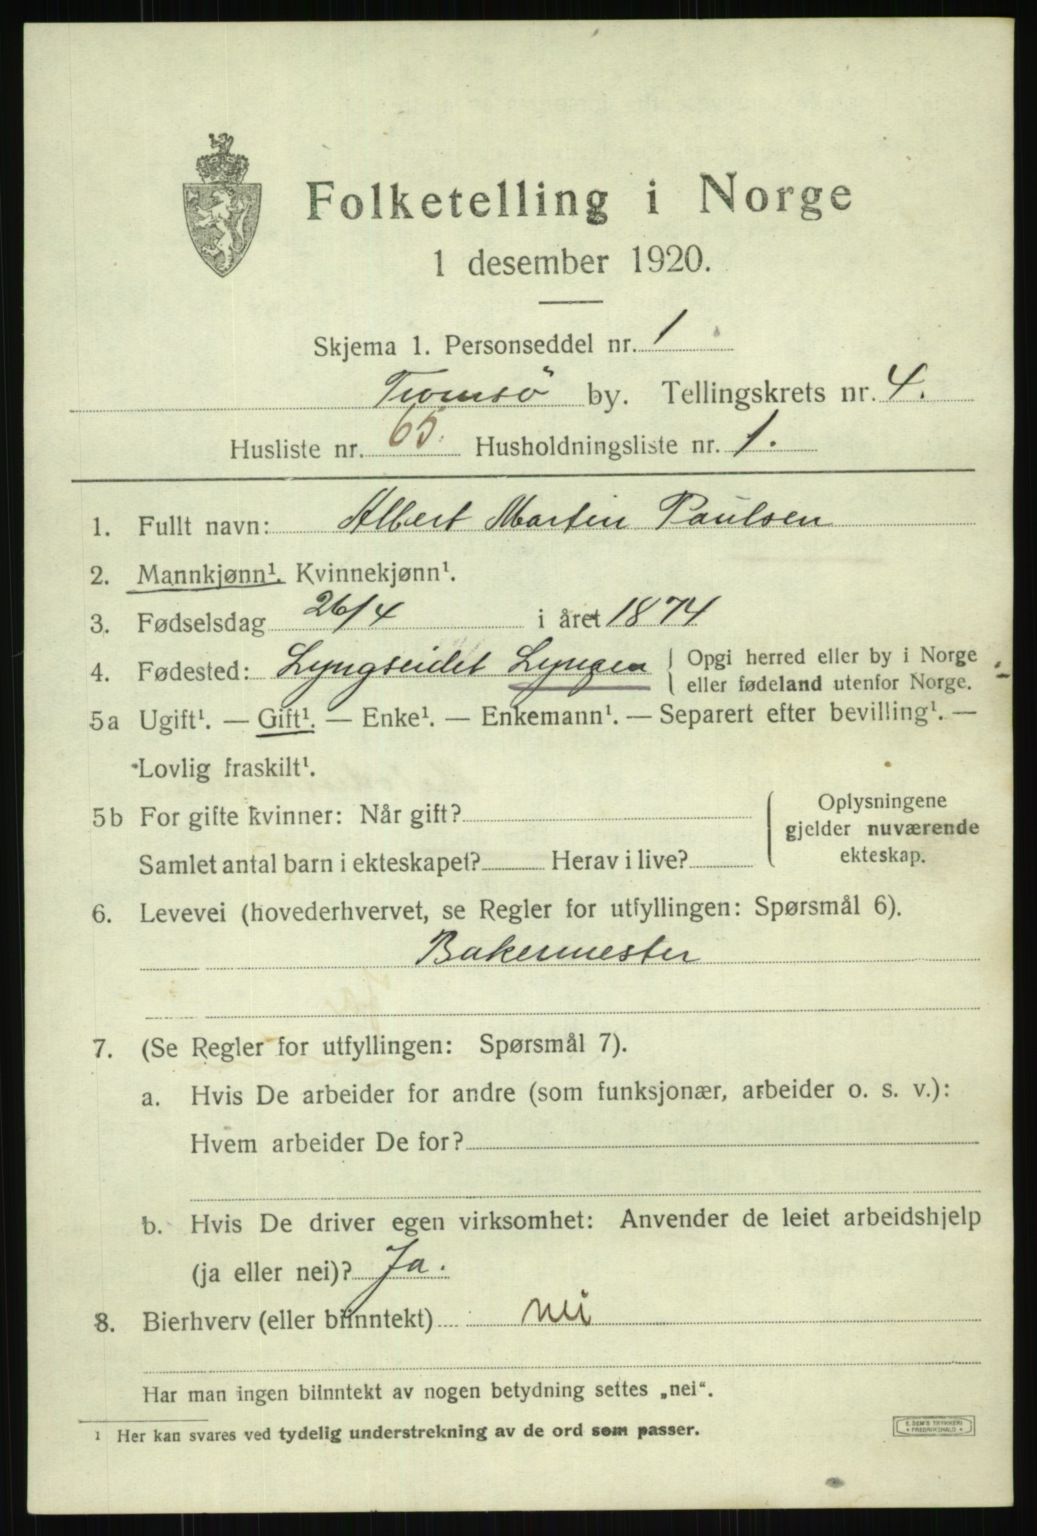 Folketelling i Norge
1 desember 1920.
Skjema 1. Personseddel nr. 1
Tromsö by. Tellingskrets nr. 4.
Husliste nr. 65. Husholdningsliste nr. 1.
1. Fullt navn: Albert Martin Paulsen
2. Mannkjønn¹. Kvinnekjønn¹.
3. Fødselsdag 26/4 i året 1874
4. Fødested: Lyngseidet Lyngen { Opgi herred eller by i Norge
eller fødeland utenfor Norge.
5a Ugift¹. — Gift¹. — Enke¹. — Enkemann¹. — Separert efter bevilling¹. —
Lovlig fraskilt¹.
5b For gifte kvinner: Når gift?
Samlet antal barn i ekteskapet? Herav i live?
{ Oplysningene
gjelder nuværende
ekteskap.
6. Levevei (hovederhvervet, se Regler for utfyllingen: Spørsmål 6).
Bakermester
7. (Se Regler for utfyllingen: Spørsmål 7).
a. Hvis De arbeider for andre (som funksjonær, arbeider o. s. v.):
Hvem arbeider De for?
b. Hvis De driver egen virksomhet: Anvender de leiet arbeidshjelp
(ja eller nei)? Ja.
8. Bierhverv (eller biinntekt) nei
Har man ingen biinntekt av nogen betydning settes „nei“.
¹ Her kan svares ved tydelig understrekning av de ord som passer.
E. SEM'S TRYKKERI
• FREDRIKSHALD •